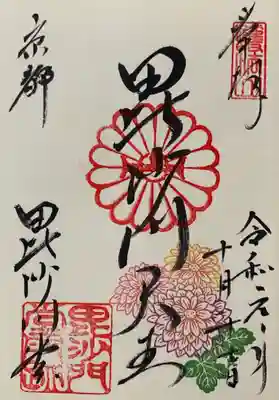 奉拝
令和元年
十月
毘沙門天王
京都
毘沙門堂
毘沙門
堂門跡